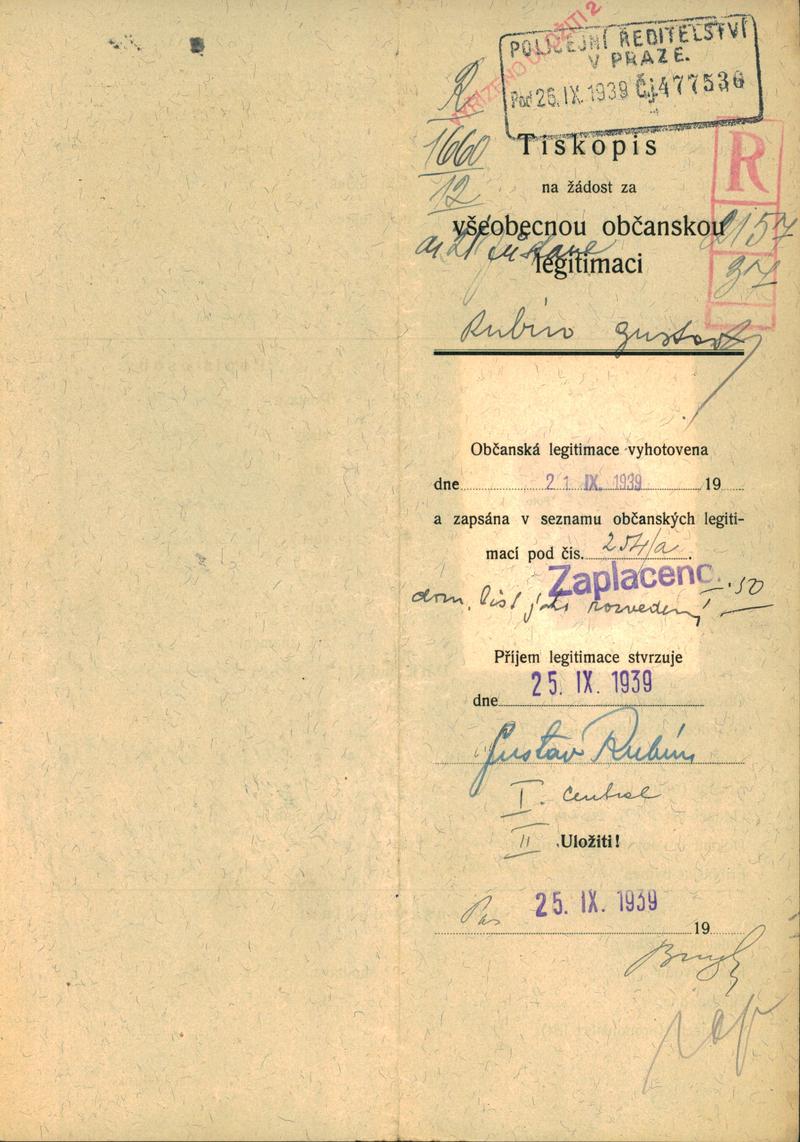 VYŘÍZENO ULOŽITI 2
POLICEJNÍ ŘEDITELSTVÍ
V PRAZE.
25.IX.1939 Čj 477536
R
1660
12
Tiskopis
R
na žádost za
všeobecnou občanskou
2157
37
legitimaci
Rubín Gustav
Občanská legitimace vyhotovena
dne 21 IX. 1939 19
a zapsána v seznamu občanských legiti-
mací pod čís. 254/a.
Zaplaceno
.50
dom. list rozvedený
Příjem legitimace stvrzuje
dne 25. IX. 1939
Gustav Rubín
I. Central
II Uložiti!
25. IX. 1939
19